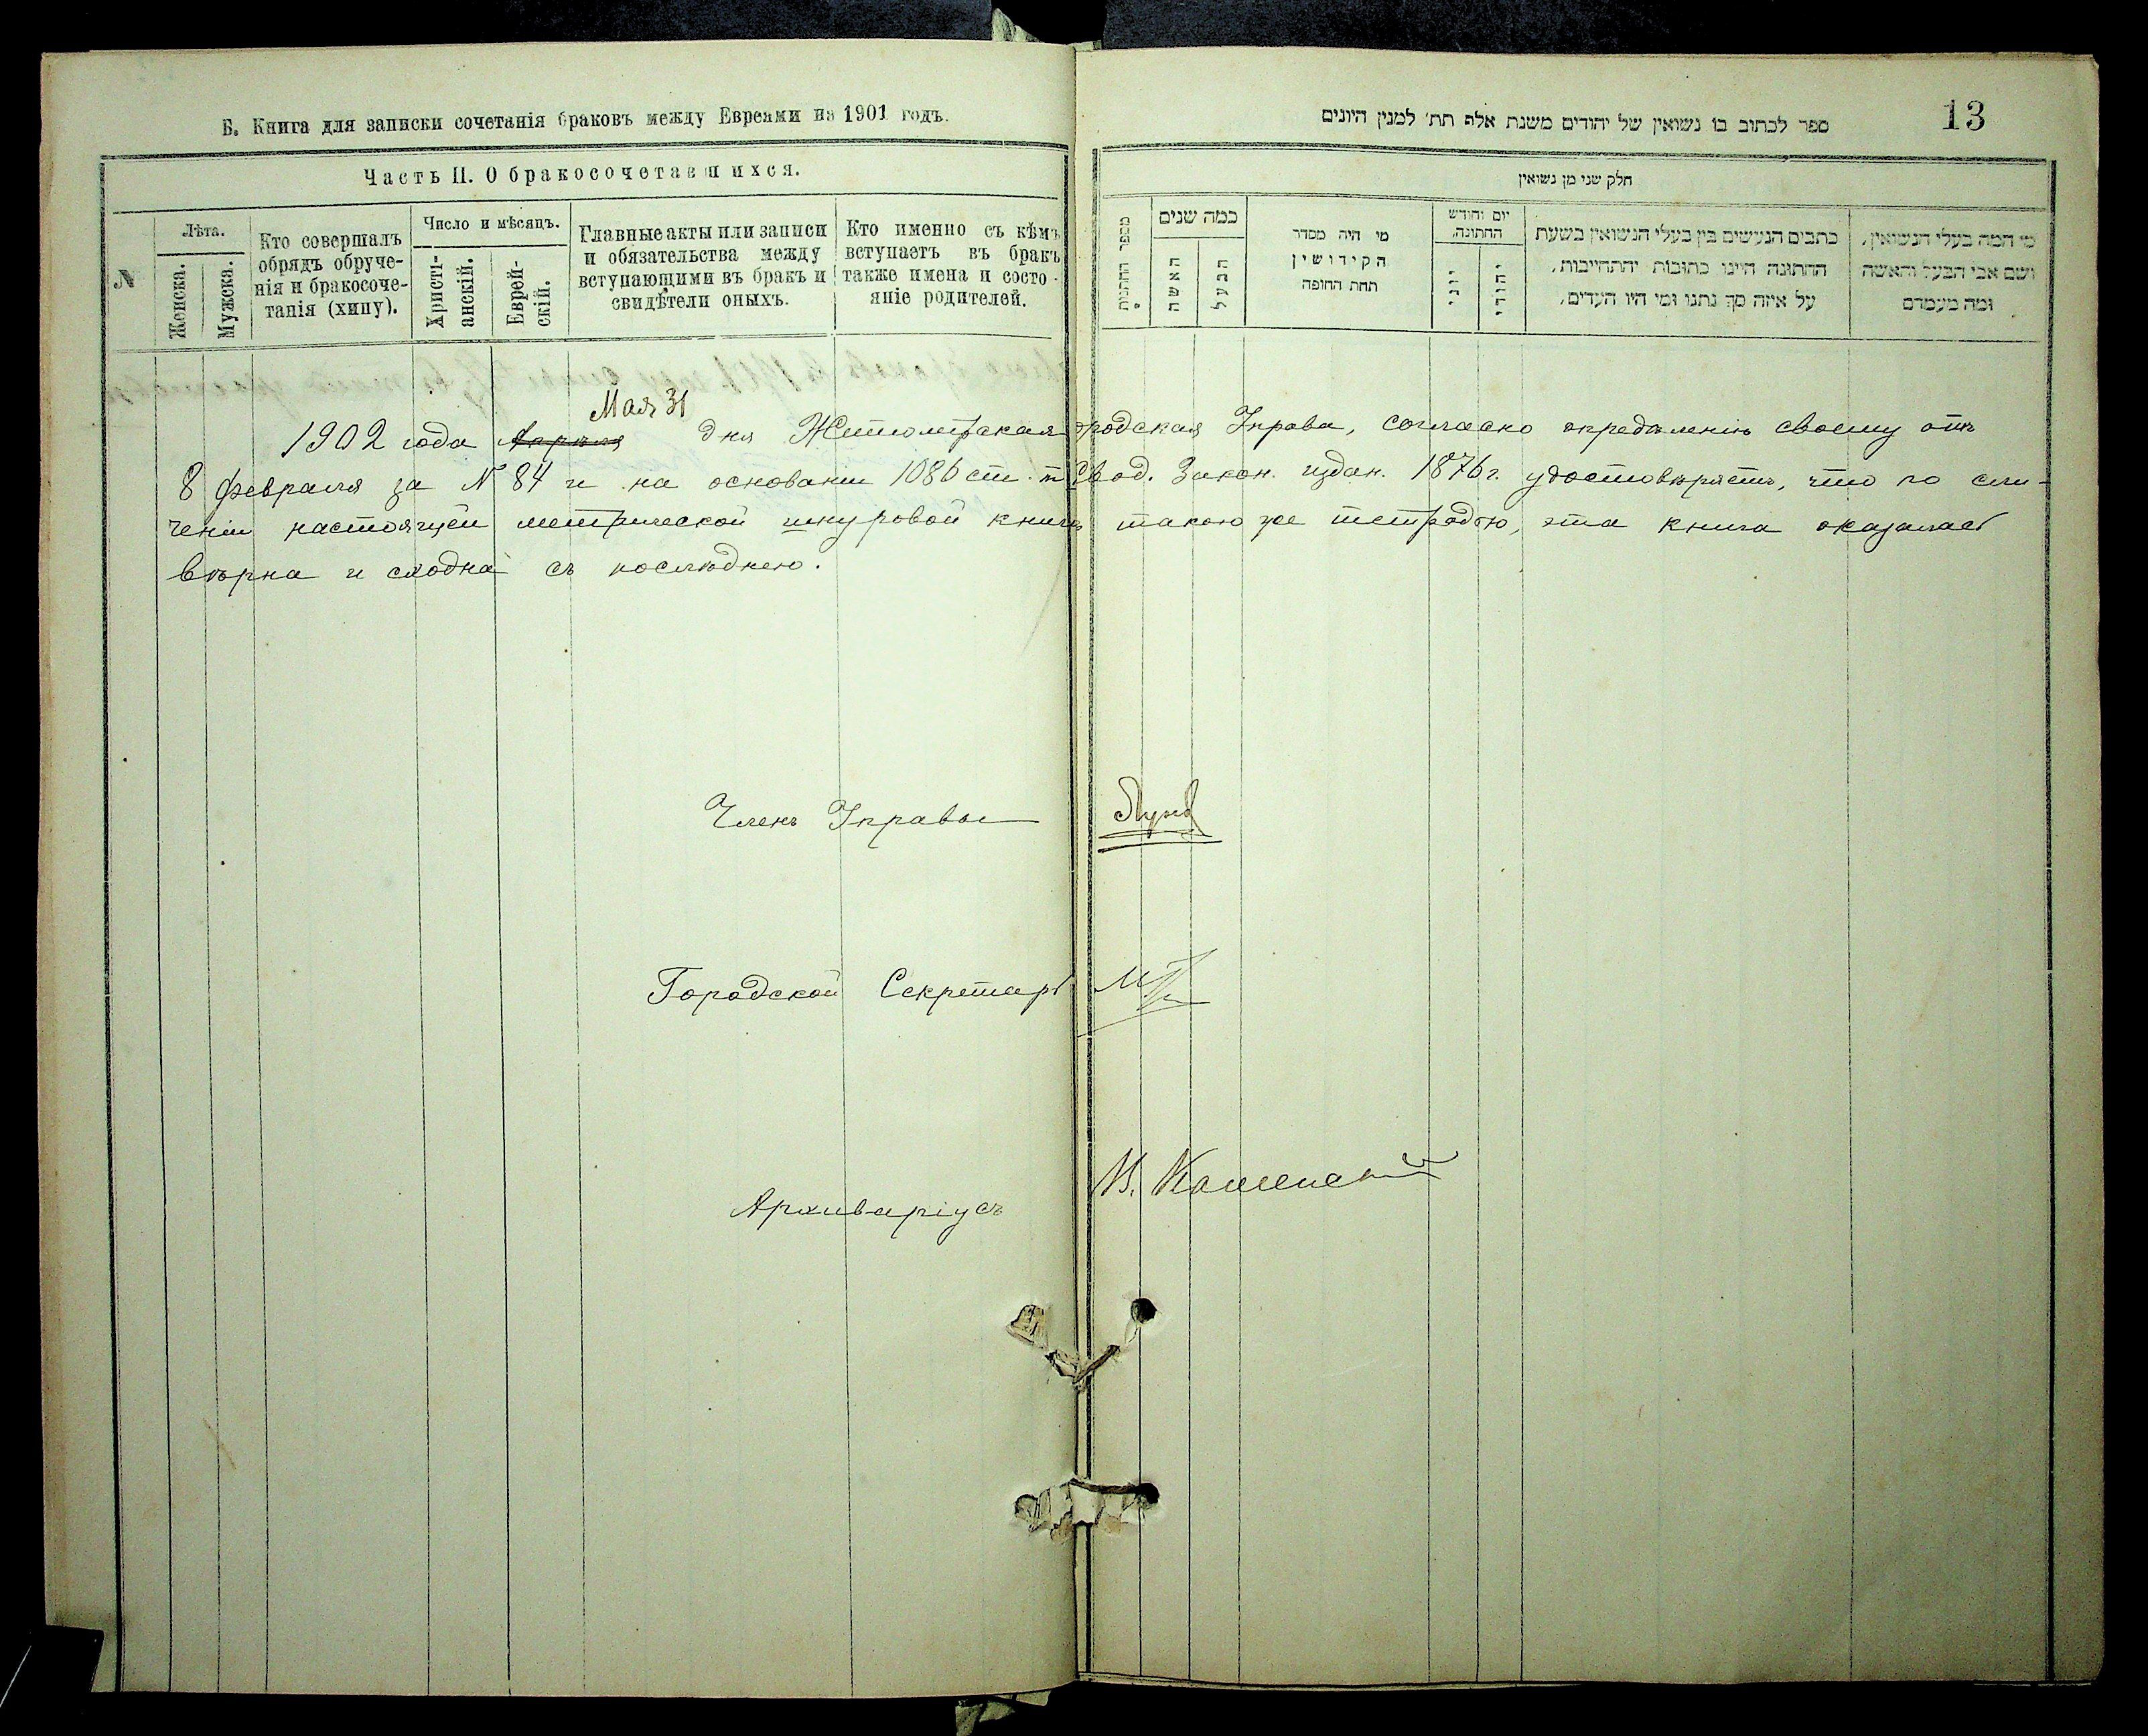 Б. Книга для записки сочетанія браковъ между Евреями на 1901 годъ.
Часть II. О бракосочетавшихся.
№
Лѣта.
Женска.
Мужска.
Кто совершалъ
обрядъ обруче-
нія и бракосоче-
танія (хипу).
Число и мѣсяцъ.
Христі-
анскій.
Еврей-
скій.
Главные акты или записи
и обязательства между
вступающими въ бракъ и
свидѣтели оныхъ.
Кто именно съ кѣмъ
вступаетъ въ бракъ
также имена и состо-
яніе родителей.
13
ספר לכתוב בו נשואין של יהודים משנת אלף תת׳ למנין היונים
חלק שני מן נשואין
מספר החתנות
כמה שנים
האשה
הבעל
מי היה מסדר
הקידושין
תחת החופה
יום וחודש
החתונה,
יוני
יהודי
כתבים הנעשים בין בעלי הנשואין בשעת
החתונה היינו כתובות יהתחייבות,
על איזה סך נתנו ומי היו העדים,
מי המה בעלי הנשואין,
ושם אבי הבעל והאשה
ומה מעמדם
Мая 31
1902 года Апрѣля дня Житомірская городская Управа, согласно опредѣленію своему отъ
8 февраля за № 84 и на основаніи 1086 ст. Свод. Закон. издан. 1876 г. удостовѣряетъ, что по сли-
ченіи настоящей метрической шнуровой книги такою же тетрадью, эта книга оказалась
вѣрна и сходна съ послѣднею.
Членъ Управы
Городской Секретарь
Архиваріусъ